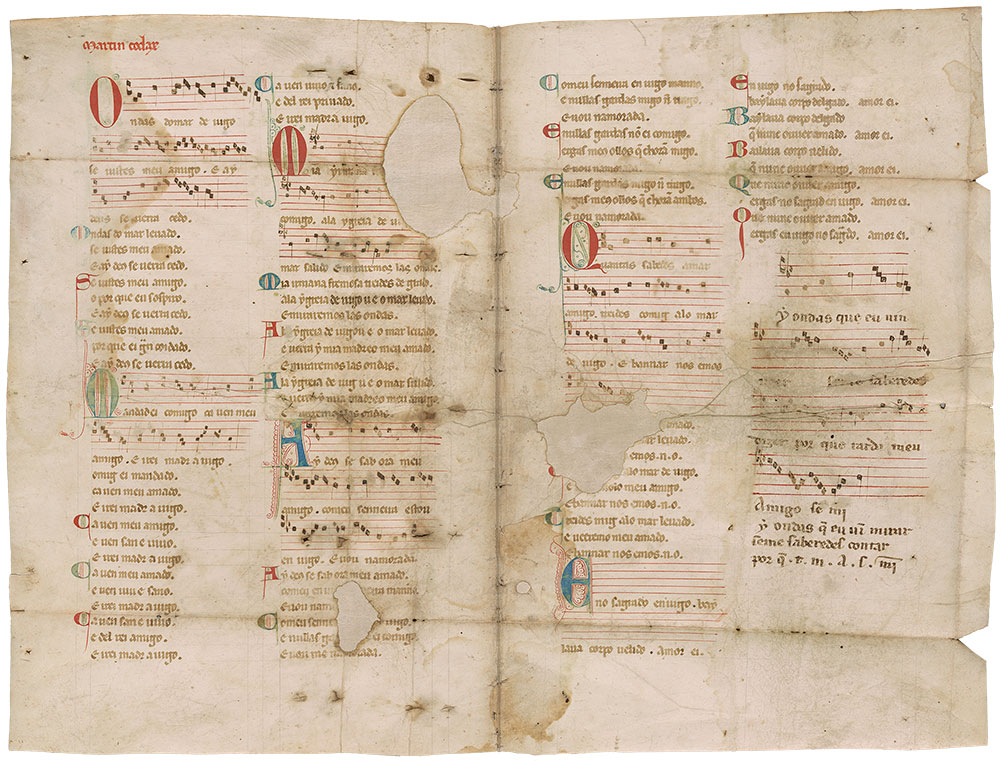 martin codax
Ondas do mar de uigo
se uistes meu amigo. E ay
deus se uerra cedo.
Ondas do mar leuado
se uistes meu amado.
E ay deus se uerra cedo.
Se uistes meu amigo.
o por que eu sospiro.
E ay deus se uerra cedo.
Se uistes meu amado.
por que ei gran
E ay deus se uerra cedo.
Mandad ei comigo ca uen meu
amigo. E irei madr a uigo.
comig ei mandado.
ca uen meu amado.
E irei madr a uigo.
Ca uen meu amigo.
e uen san e uiuo.
E irei madr a uigo.
Ca uen meu amado.
e uen uiu e sano.
E irei madr a uigo.
Ca uen san e uiuo.
e del rei amigo.
E irei madr a uigo.
Ca uen uiuo e sano.
e del rei priuado.
E irei madr a uigo.
Mia yrmana
comigo. ala ygreia de u
mar salido E miraremos las ondas.
Mia irmana fremosa treides de grado.
ala ygreia de uigo u e o mar leuado.
E miraremos las ondas.
A la ygreia de uigo u e o mar leuado.
e uerra y mia madre o meu amado.
E miraremos las ondas.
A la ygreia de uig u e o mar salido.
e uerra y mia madre o meu amigo.
E miraremos las ondas.
Ay deus se sab ora meu
amigo. comeu senneira estou
en uigo. E uou namorada.
Ay deus se sab ora meu amado.
comeu en uigo senneira manno.
E uou nam
Comeu senne uigo.
e nullas gar comigo.
E uou namorada.
Comeu senneira en uigo manno.
e nullas gardas migo non
E uou namorada.
E nullas gardas non ei comigo.
ergas meus ollos que choran migo.
E uou namorada.
E nullas gardas migo non
ergas meus ollos que choran ambos.
E uou namorada.
Quantas sabedes amar
amigo. treides comig alo mar
de uigo. E bannar nos emos
amado.
ar leuado.
emos.n.o.
alo mar de uigo.
meu amigo.
E bannar nos emos.n.o.
Treides mig alo mar leuado.
e ueeremo meu amado.
E bannar nos emos.n.o.
Eno sagrado en uigo. bay
laua corpo uelido. Amor ei.
En uigo no sagrado.
baylaua corpo delgado. amor ei.
Baylaua corpo delgado
que nunc ouuer amado. amor ei.
Bailaua corpo uelido.
que nunc ouuer amigo. amor ei.
Que nunc ouuer amigo.
ergas no sagrad en uigo. amor ei.
Que nunc ouuer amado.
ergas en uigo no sagrado. amor ei.
Ay ondas que eu uin
ueer se me saberedes
dizer por que tarda meu
Amigo se m̄i
Ay ondas q̄ eu uin mirar
se me saberedes contar
por q̄ . t. m. A. s. m̄i